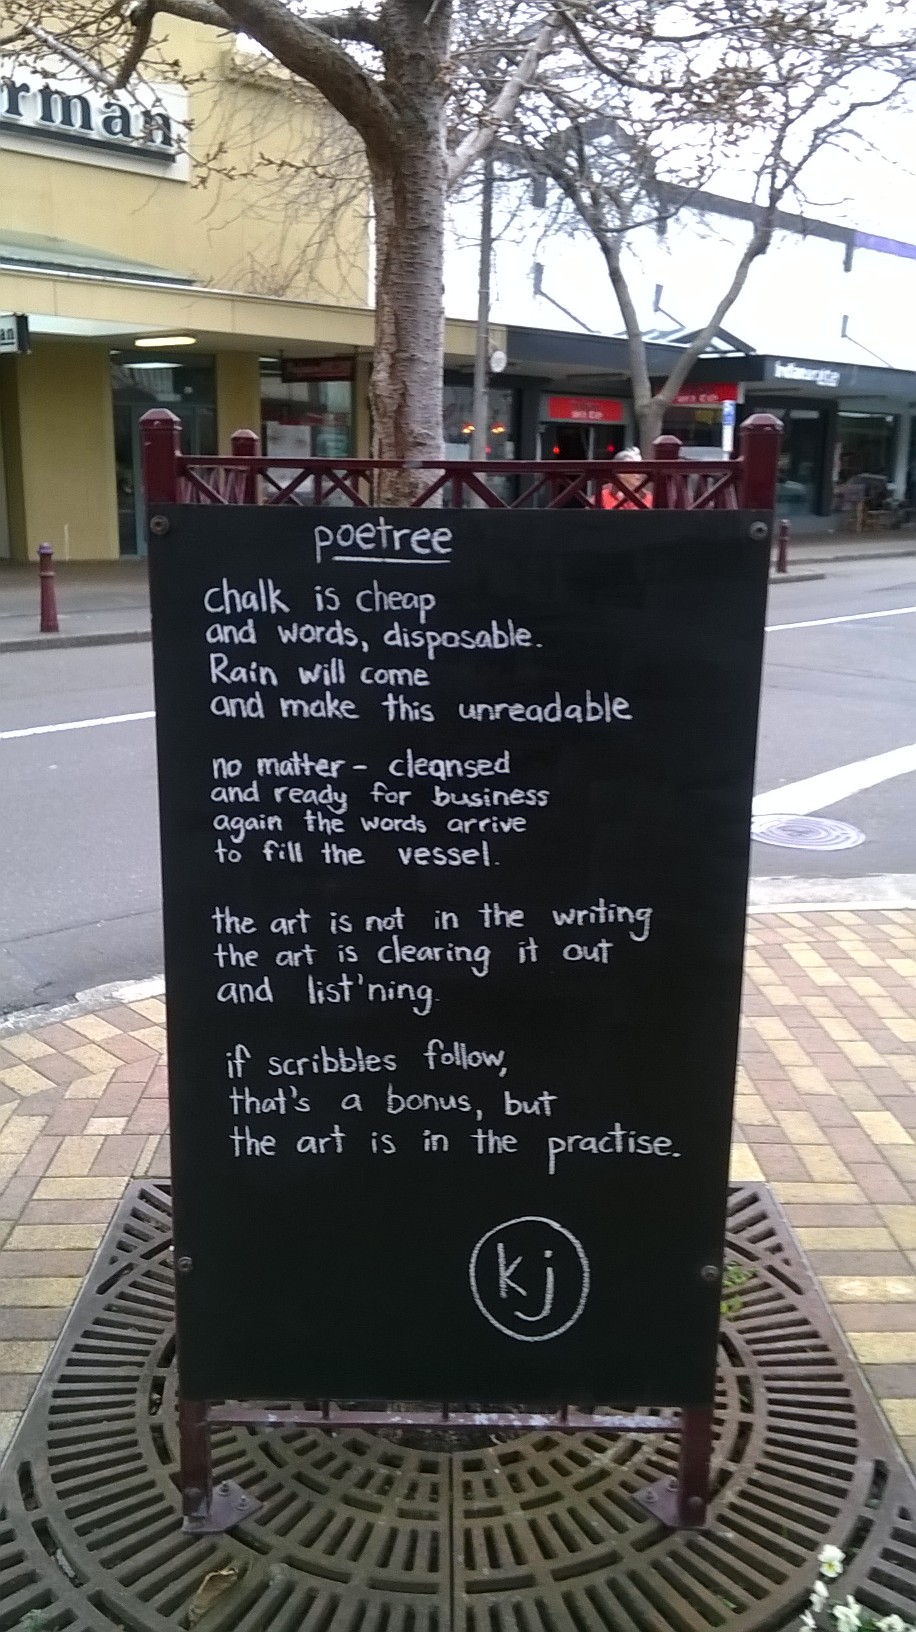 rman
an
poetree
chalk is cheap
and words, disposable.
Rain will come
and make this unreadable
no matter - cleansed
and ready for business
again the words arrive
to fill the vessel.
the art is not in the writing
the art is clearing it out
and list'ning.
if scribbles follow,
that's a bonus, but
the art is in the practise.
kj